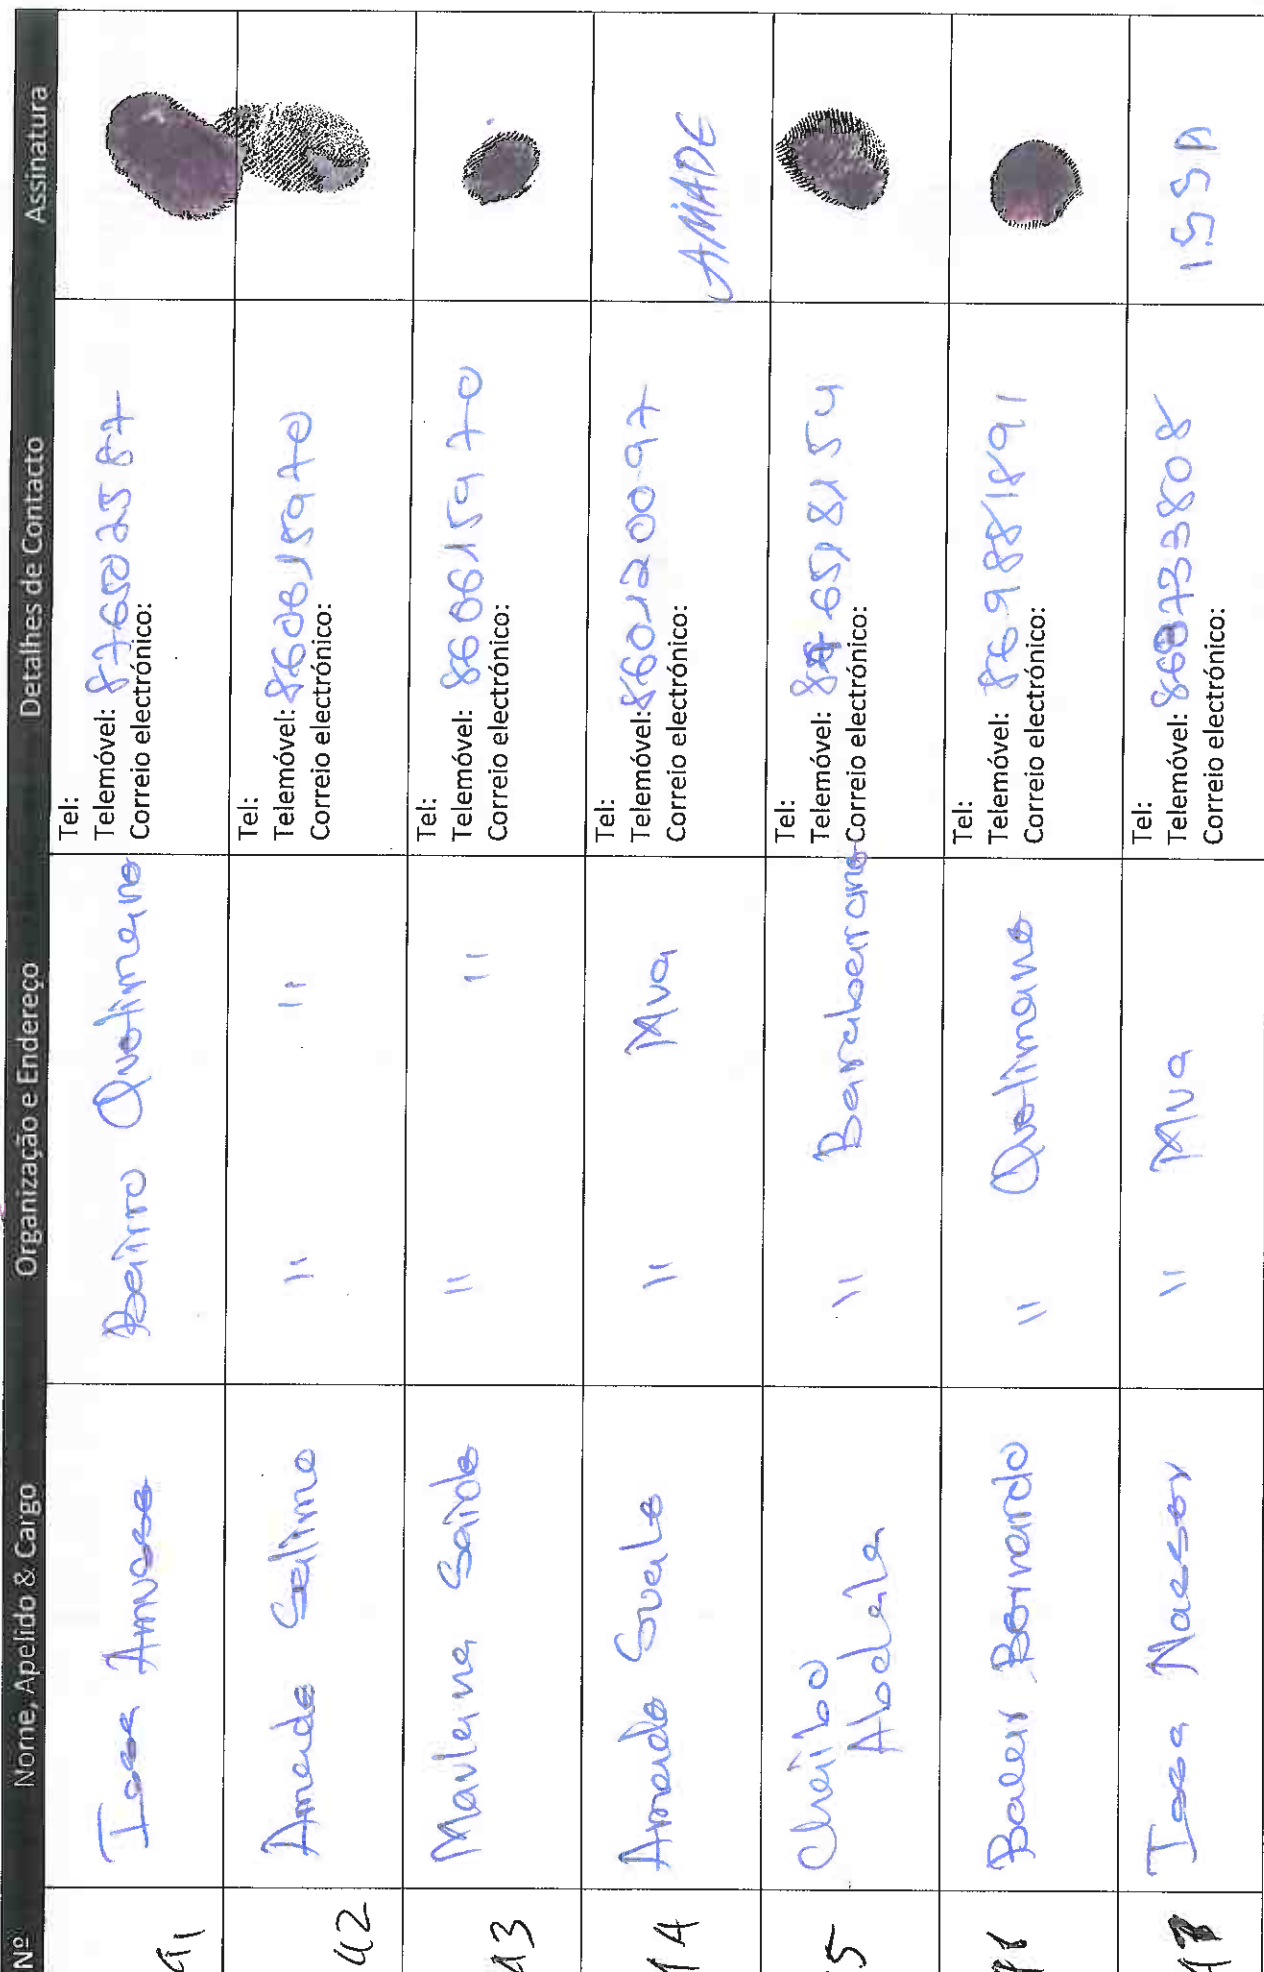 Nº Nome, Apelido & Cargo Organização e Endereço Detalhes de Contacto Assinatura
91 Issa Amusse Bairro Quelimane
Tel:
Telemóvel: 876502587
Correio electrónico:
42 Amade Salimo " "
Tel:
Telemóvel: 860615970
Correio electrónico:
43 Maulana Saide " "
Tel:
Telemóvel: 860615970
Correio electrónico:
44 Amade Suale " Mua
Tel:
Telemóvel: 860120097
Correio electrónico:
AMADE
5 Cheibo Abdala " Barabeirane
Tel:
Telemóvel: 876518154
Correio electrónico:
Baler Bernardo " Quelimane
Tel:
Telemóvel: 869881891
Correio electrónico:
Issa Nassor " Mua
Tel:
Telemóvel: 860733808
Correio electrónico:
ISSA